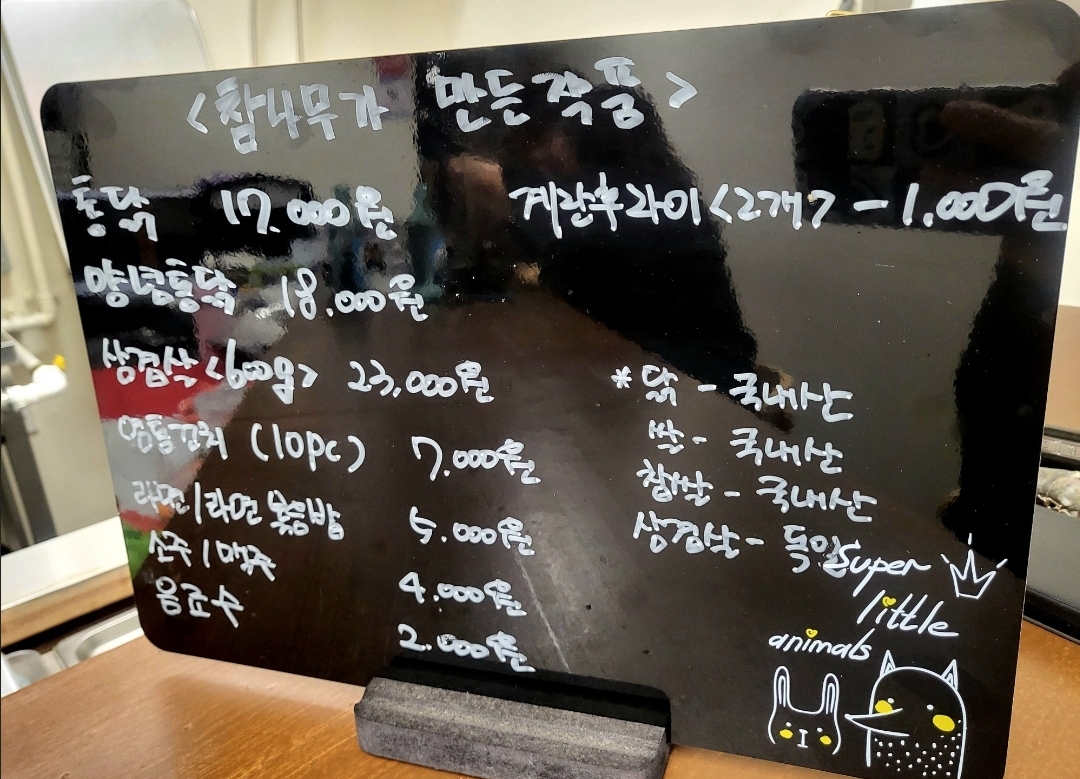 <참나무가 만든 작품>
통닭 17.000원
양념통닭 18,000원
삼겹살 <600g> 23,000원
(10pc) 7.000원
라면/라면볶음밥 5.000원
소주/맥주 4.000원
음료수 2.000원
계란후라이 <2개> - 1.000원
* 닭 - 국내산
쌀 - 국내산
찹쌀 - 국내산
삼겹살 - 독일
super
little
animals